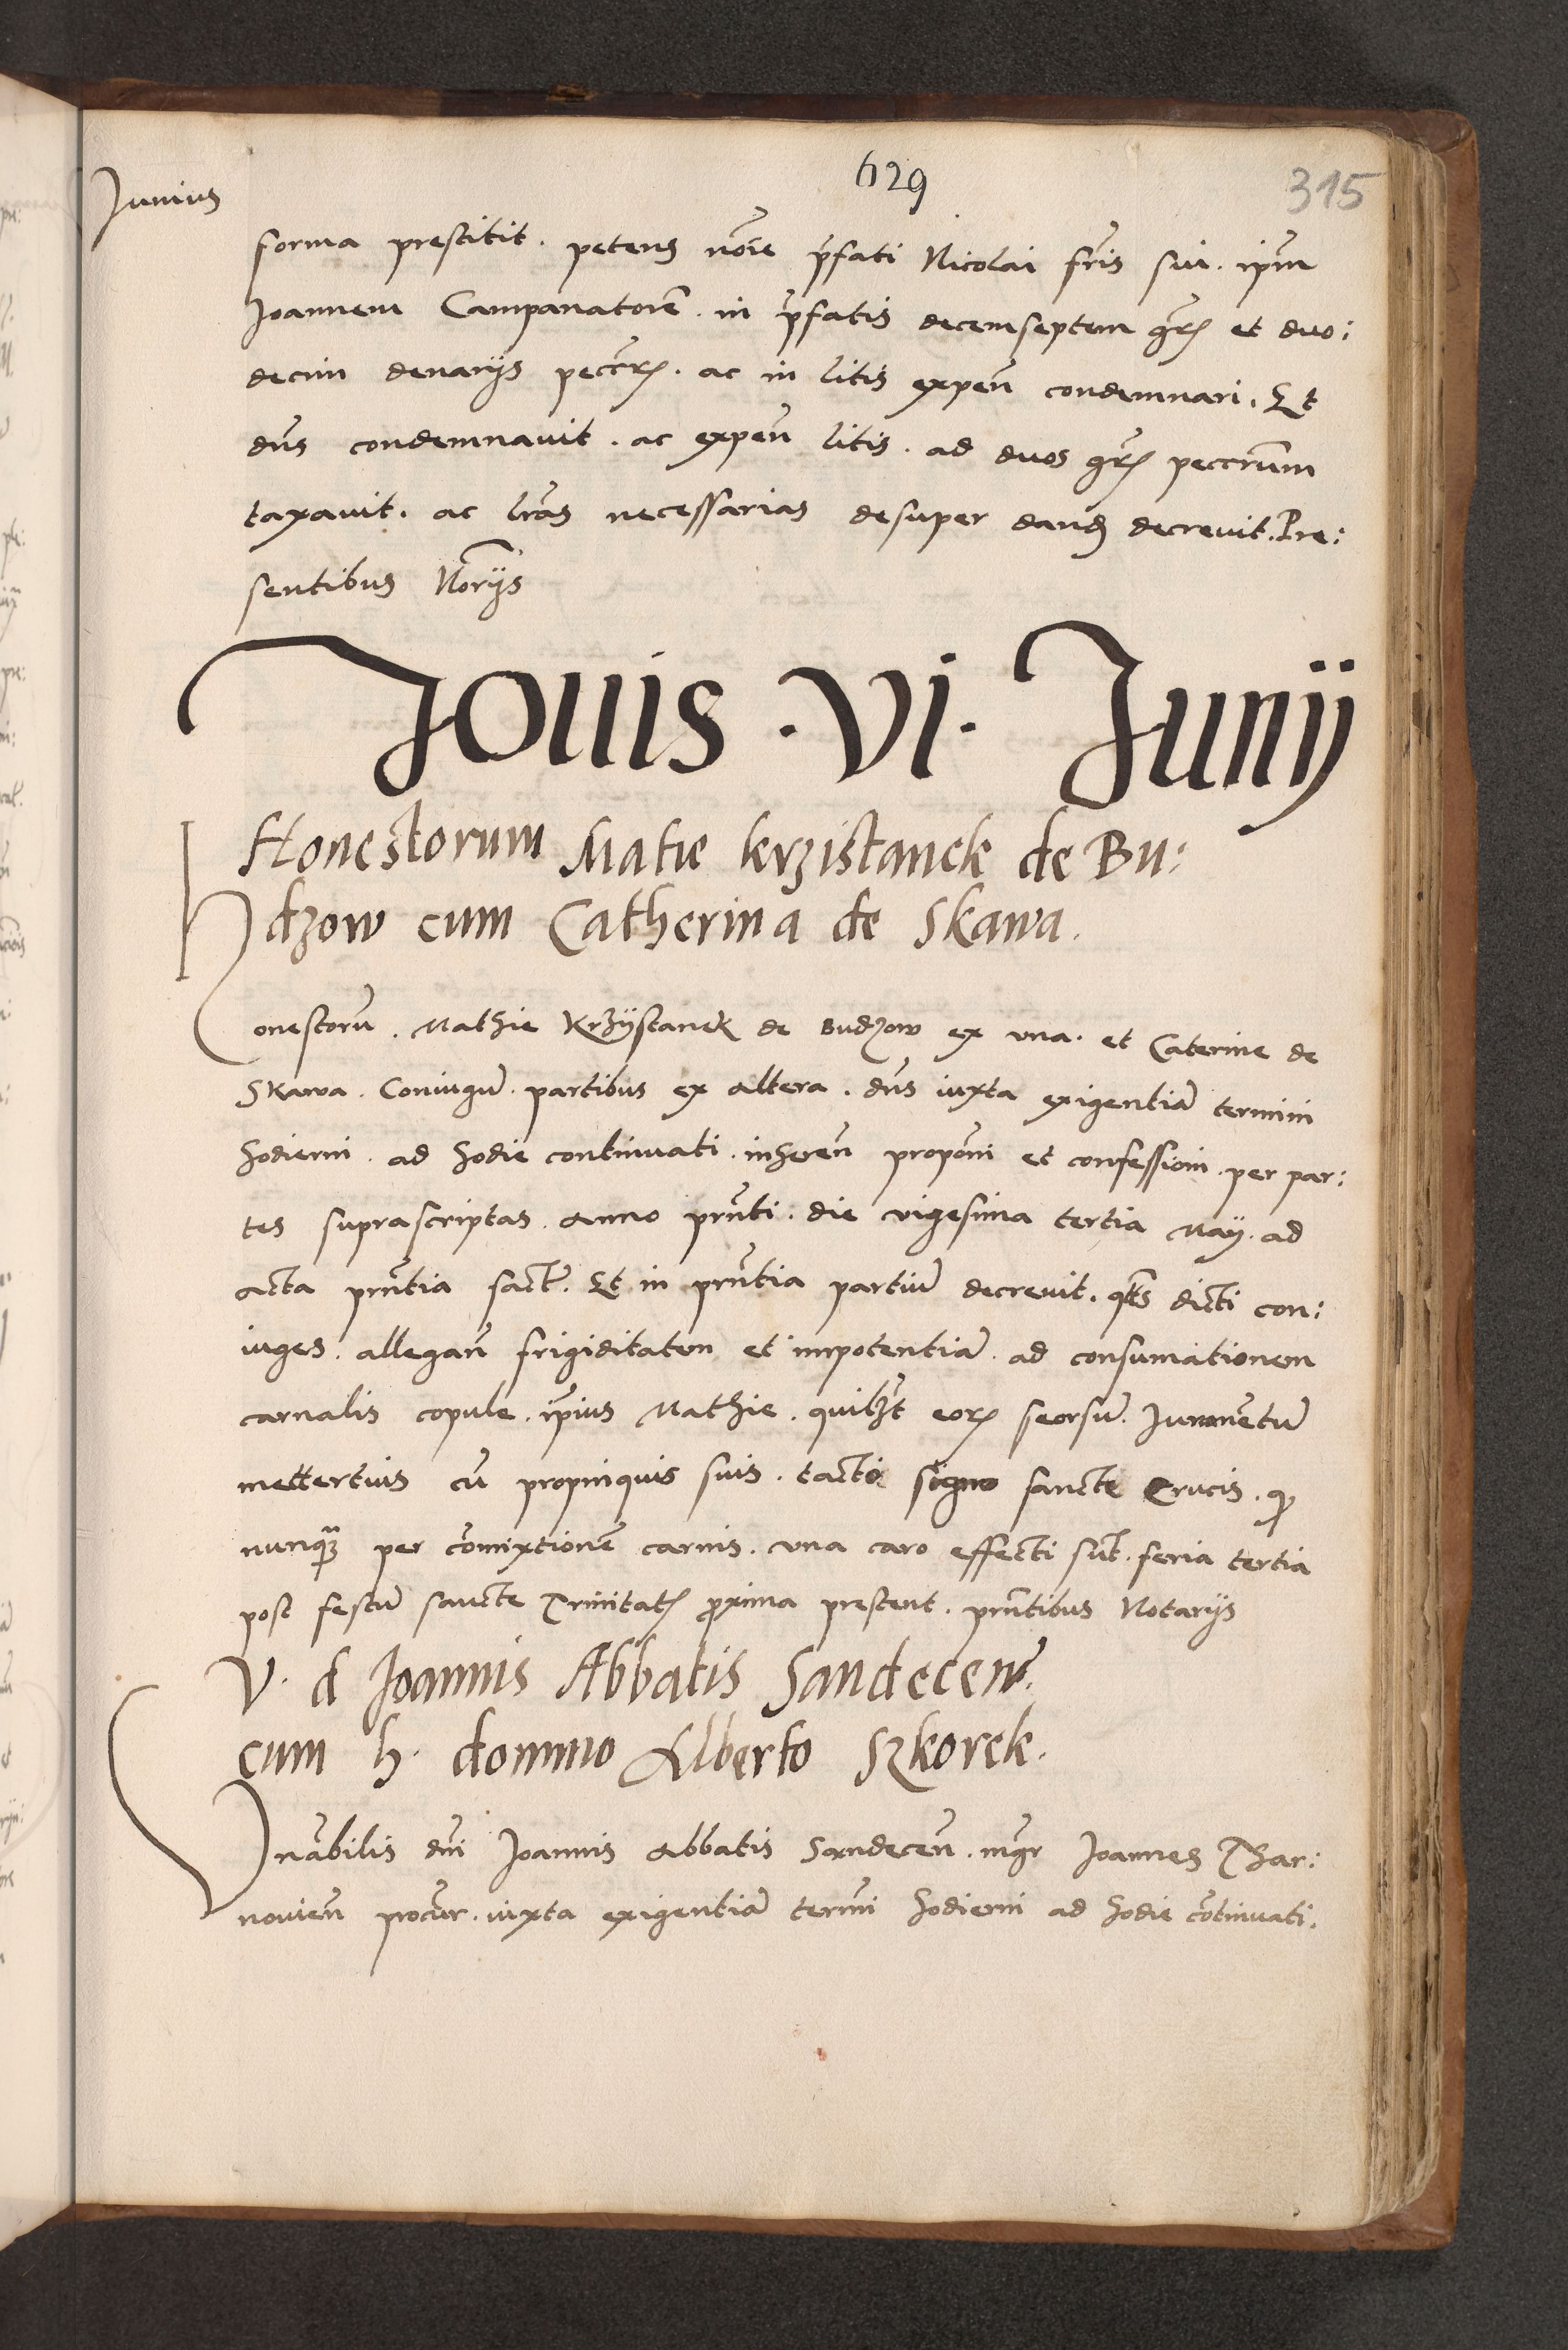 629
315
Junius
forma prestitit. petens noīe p̄fati Nicolai fr̄is sui. ip̄m
Joannem Campanatorē. in p̄fatis decemseptem gr̄. et duo:
decim denarijs pecc̄. ac in litis expen̄ condemnari. Et
dn̄s condemnavit. ac expen̄ litis. ad duos gr̄. peccrūm
taxavit. ac lr̄as necessarias desuper dand̄ decrevit. Pre:
sentibus Norijs
Jovis .vi. Junij
Honestorum Matie krzistanek de Bu:
dzow cum Catherina de Skawa.
Honestorū. Mathie Krzÿstanek de Budzow ex una. et Caterine de
Skawa. Coniugū. partibus ex altera. dn̄s iuxta exigentiā termini
hodierni. ad hodie continuati. inheren̄ propōni et confessioni. per par:
tes suprascriptas. Anno prn̄ti. die vigesima tertia Maij. ad
acta prn̄tia fact̄. Et in prn̄tia partiū decrevit. qt̄s dicti con:
iuges. allegan̄ frigiditatem et impotentiā. ad consumationem
carnalis copule. ip̄ius Mathie. quilib̄t eor̄ seorsū. Juramentū
mettertius cū propinquis suis. tacto signo sancte Crucis. qꝫ
nunqꝫ per cōmixtionē carnis. una caro effecti sūt. feria tertia
post festū sancte Trinitat̄ p̄xima prestent. prn̄tibus Notarijs
V. d Joannis Abbatis Sandecen̄.
cum h. domino Alberto Szkorek.
Vn̄abilis dn̄i Joannis abbatis Sandecen̄. mḡr Joannes Thar:
novien̄ procur̄. iuxta exigentiā termi̅ni hodierni ad hodie cōtinuati.